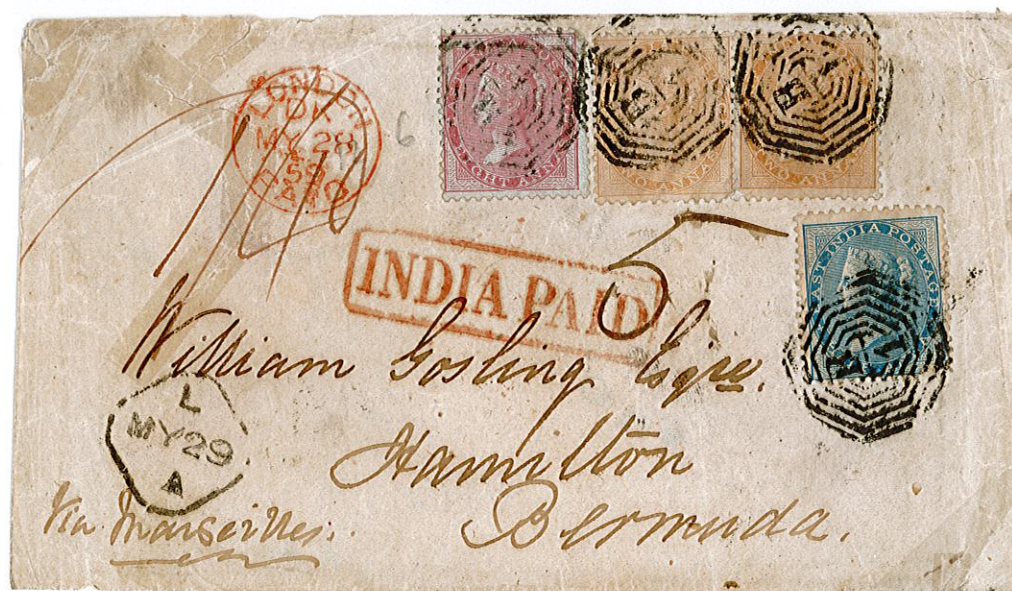 LONDON
MY 28
58
PAID
6
EIGHT ANNAS
TWO ANNAS
TWO ANNAS
EAST INDIA POSTAGE
INDIA PAID
5
William Gosling Esqre.
L
MY 29
A
Hamilton
Bermuda.
Via Marseilles.